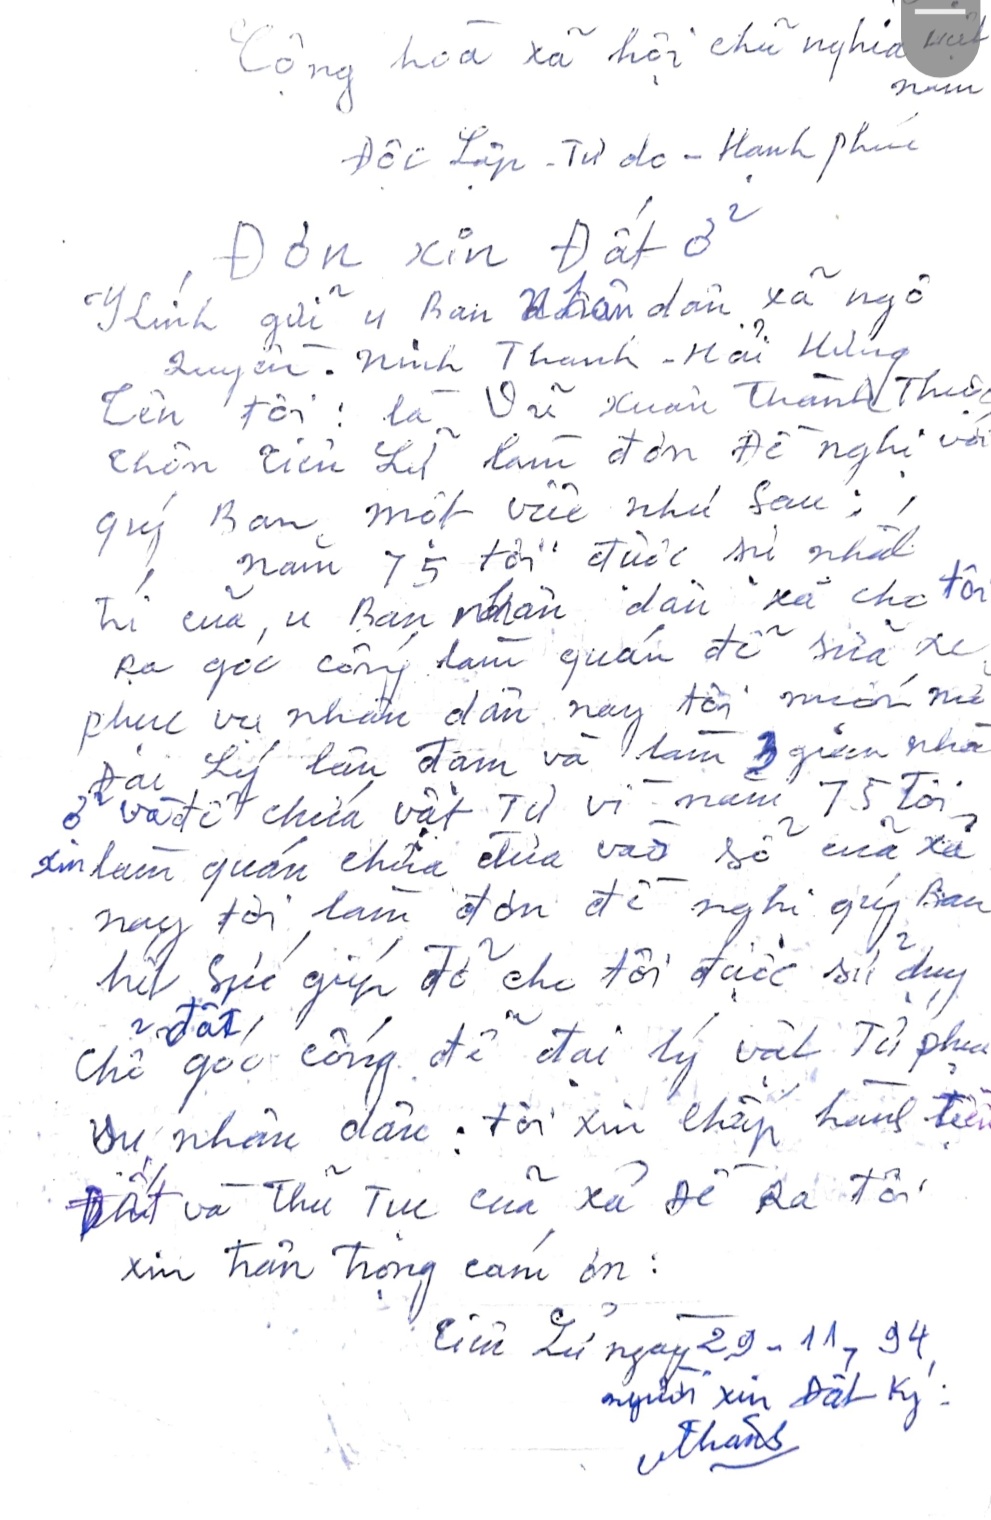 Cộng hoà xã hội chũ nghĩa Việt
nam
Độc Lập - Tư do - Hạnh phúc
Đơn xin Đất ở
Kính gửi u Ban nhân dân xã ngô
Quyền. Ninh Thanh - Hải Hưng
Tên tôi: là Vũ Xuân Thành Thuộc
thôn Tiên Lử làm đơn Đề nghị với
quý Ban một việc như sau:
năm 75 tôi được sự nhất
trí của u Ban nhân dân xã cho tôi
Ra góc cống làm quán để sửa xe
phuc vu nhân dân nay tôi muốn mở
Đại Lý lân đam và làm 3 gian nhà
ở và để chứa vật Tư vì năm 75 Tôi
xin làm quán chưa đưa vaò sổ của xã
nay tôi làm đơn đề nghi quý Ban
hết Sức giúp đỡ cho tôi được sử dụng
đất
chỗ góc cống để đai lý vât Tư phục
vu nhân dân. tôi xin chấp hành tiền
Đất và Thũ Tuc cuã xã Đề Ra tôi
xin trân trọng cám ơn:
Tiên Lử ngày 29-11-94
người xin Đất Ký:
Thành